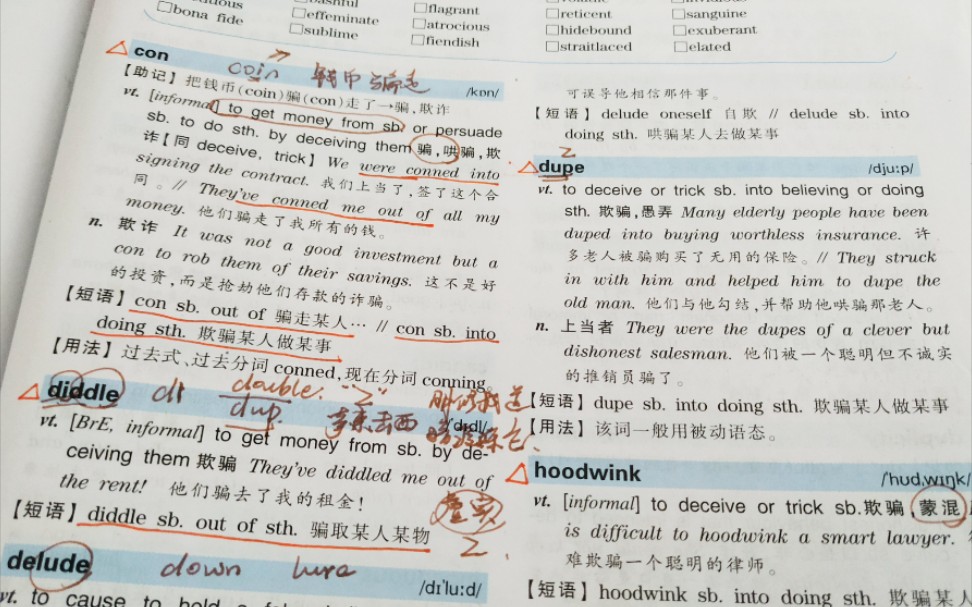 □bona fide
□effeminate
□sublime
□flagrant
□atrocious
□fiendish
□reticent
□hidebound
□straitlaced
□sanguine
□exuberant
□elated
△ con /kɒn/
coin 钱币 骗走
【助记】把钱币(coin)骗(con)走了→骗,欺诈
vt. [informal] to get money from sb. or persuade
sb. to do sth. by deceiving them 骗,哄骗,欺
诈【同 deceive, trick】We were conned into
signing the contract. 我们上当了,签了这个合
同。// They've conned me out of all my
money. 他们骗走了我所有的钱。
n. 欺诈 It was not a good investment but a
con to rob them of their savings. 这不是好
的投资,而是抢劫他们存款的诈骗。
【短语】con sb. out of 骗走某人… // con sb. into
doing sth. 欺骗某人做某事
【用法】过去式、过去分词 conned,现在分词 conning。
△ diddle /ˈdɪdl/
di double "2"
dup
vt. [BrE, informal] to get money from sb. by de-
ceiving them 欺骗 They've diddled me out of
the rent! 他们骗去了我的租金!
【短语】diddle sb. out of sth. 骗取某人某物
delude /dɪˈluːd/
down lure
vt. to cause to hold a
可误导他相信那件事。
【短语】delude oneself 自欺 // delude sb. into
doing sth. 哄骗某人去做某事
2
△ dupe /djuːp/
vt. to deceive or trick sb. into believing or doing
sth. 欺骗,愚弄 Many elderly people have been
duped into buying worthless insurance. 许
多老人被骗购买了无用的保险。// They struck
in with him and helped him to dupe the
old man. 他们与他勾结,并帮助他哄骗那老人。
n. 上当者 They were the dupes of a clever but
dishonest salesman. 他们被一个聪明但不诚实
的推销员骗了。
【短语】dupe sb. into doing sth. 欺骗某人做某事
【用法】该词一般用被动语态。
△ hoodwink /ˈhʊd,wɪŋk/
vt. [informal] to deceive or trick sb.欺骗,蒙混
is difficult to hoodwink a smart lawyer.
难欺骗一个聪明的律师。
【短语】hoodwink sb. into doing sth. 欺骗某人